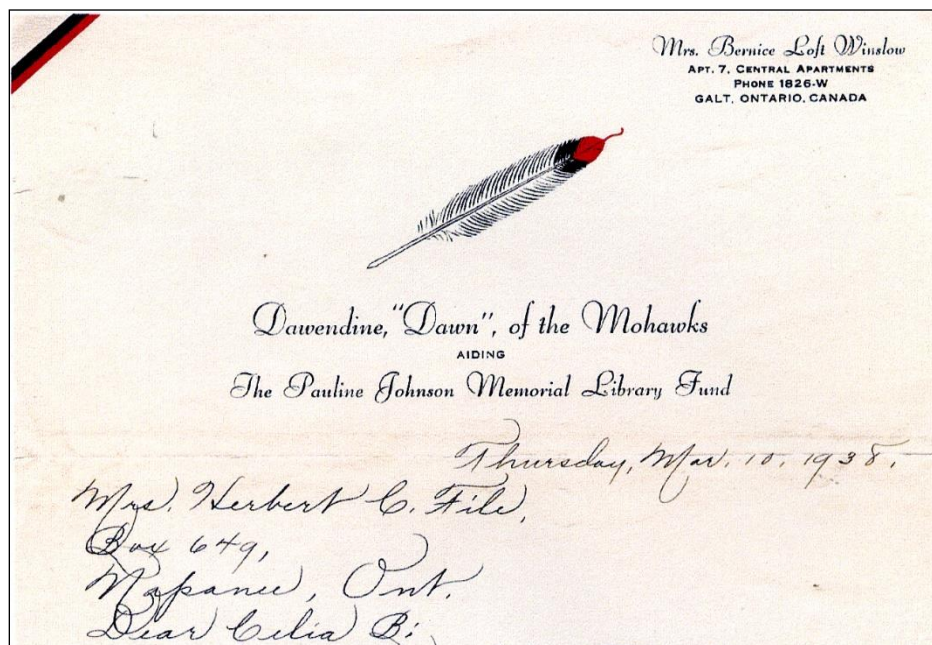 Mrs. Bernice Loft Winslow
APT. 7, CENTRAL APARTMENTS
PHONE 1826-W
GALT, ONTARIO, CANADA
Dawendine, "Dawn", of the Mohawks
AIDING
The Pauline Johnson Memorial Library Fund
Thursday, Mar. 10, 1938.
Mrs. Herbert C. File,
Box 649,
Napanee, Ont.
Dear Celia B: